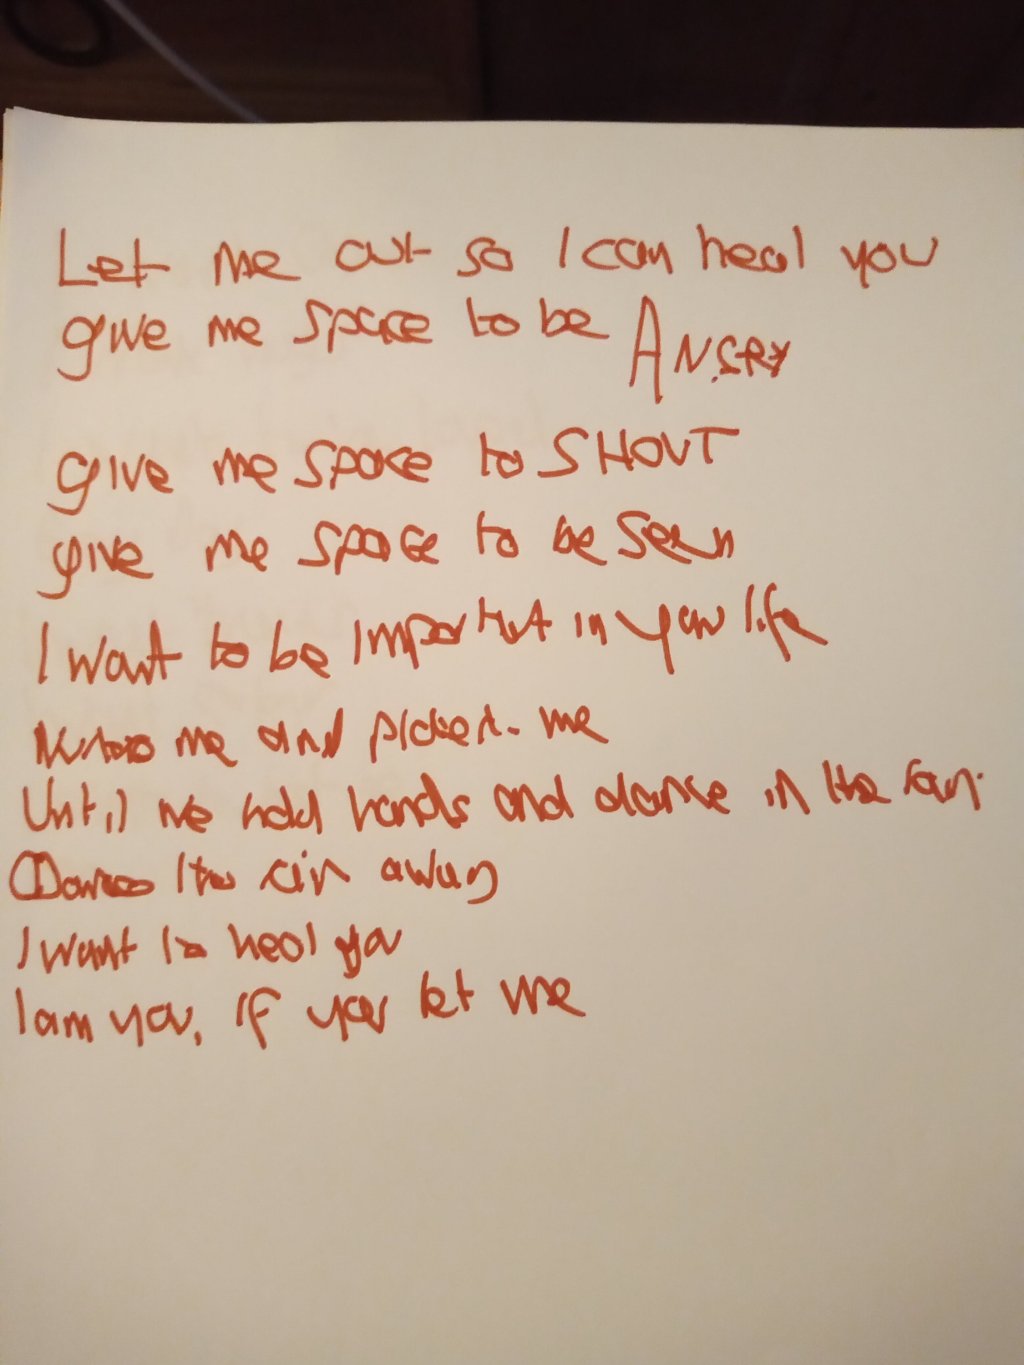 Let me out so I can heal you
give me space to be ANGRY
give me space to SHOUT
give me space to be seen
I want to be important in your life
me and me
Until we hold hands and dance in the rain.
Dance the rain away
I want to heal you
I am you, if you let me